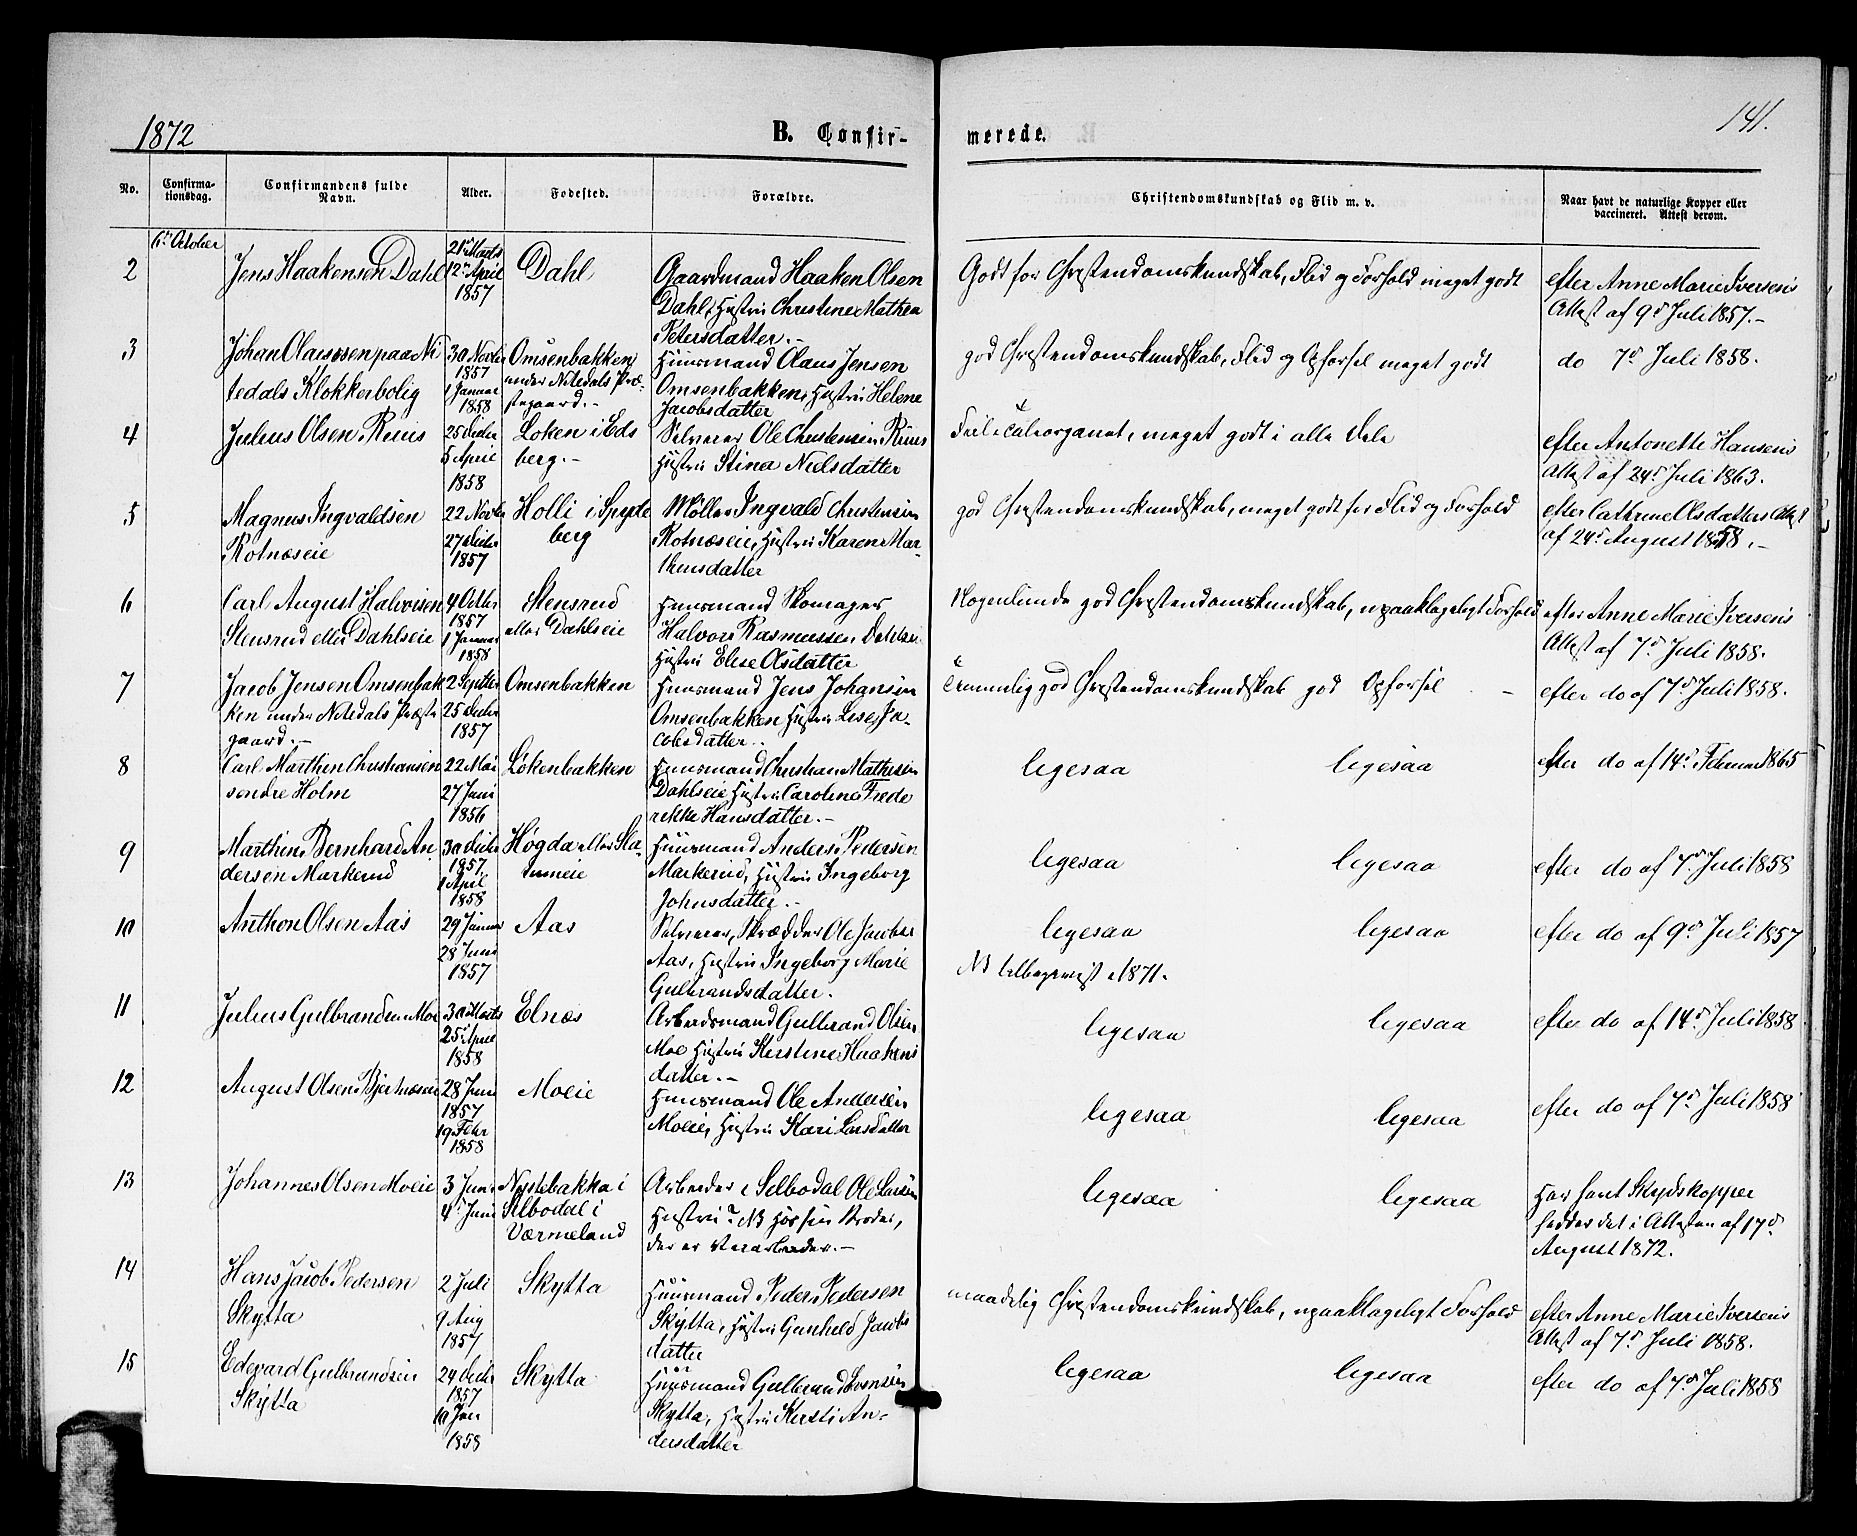 1872
B. Confirmerede.
141.
No.
Confirmationsdag.
Confirmandens fulde Navn.
Alder.
Fodested.
Forældre.
Christendomskundskab og Flid m. v.
Naar havt de naturlige Kopper eller vaccineret. Attest derom.
6te October
2
Jens Haakensen Dahl
21de Marts
12te April
1857
Dahl
Gaardmand Haaken Olsen
Dahl, Hustru Christine Mathea
Petersdatter.-
Godt for Christendomskundskab, Flid og Forhold meget godt
efter Anne Marie Iversens
Attest af 9de Juli 1857.-
3
Johan Olaussen paa Ni
tedals Klokkerbolig
30 Novbr
1857
1 Januar
1858
Omsenbakken
under Nitedals Præ-
stegaard.-
Huusmand Olaus Jensen
Omsenbakken, Hustru Helene
Jacobsdatter
god Christendomskundskab, Flid og Opførsel meget godt
do 7de Juli 1858.
4
Julius Olsen Ruus
25 Decbr
5 April
1858
Løken i Eds
berg.-
Selveier Ole Christensen Ruus
Hustru Stina Nielsdatter
Feil i Taleorganet, meget godt i alle Dele
efter Antonette Hansens
Attest af 24de Juli 1863.
5
Magnus Ingvaldsen
Rotnæseie
22 Novbr
27 Decbr
1857
Holli i Spyde
berg
Møller Ingvald Christensen
Rotnæseie, Hustru Karen Mar-
thensdatter
god Christendomskundskab, meget godt for Flid og Forhold
efter Cathrine Olsdatters Attest
af 24de August 1858.-
6
Carl August Halvorsen
Stensrud eller Dahlseie
4 Octbr
1857
1 Januar
1858
Stensrud
eller Dahlseie
Huusmand Skomager
Halvor Rasmussen Dahlsei
Hustru Elise Olsdatter
Nogenlunde god Christendomskundskab, upaaklageligt Forhold
efter Anne Marie Iversens
Attest af 7de Juli 1858.
7
Jacob Jensen Omsenbak
ken under Nitedals Præste
gaard.-
2 Septbr
25 Decbr
1857
Omsenbakken
Huusmand Jens Johansen
Omsenbakken Hustru Lise Ja-
cobsdatter.
Temmelig god Christendomskundskab god Opførsel -
efter do af 7de Juli 1858.
8
Carl Marthin Christiansen
søndre Holm
22 Mai
27 Juni
1856
Løkenbakken
Huusmand Christian Mathisen
Dahlseie Hustru Caroline Frede
rikke Hansdatter.-
ligesaa ligesaa
efter do af 14de Februar 1865
9
Marthin Bernhard An-
dersen Markerud
30 Decbr
1857
1 April
1858
Høgda eller Sla-
Huusmand Anders Pedersen
Markerud, Hustru Ingeborg
Johnsdatter.-
ligesaa ligesaa
efter do af 7de Juli 1858
10
Anthon Olsen Aas
29 Januar
28 Juni
1857
Aas
Selveier, Skrædder Ole Jacobsen
Aas, Hustru Ingeborg Marie
Gulbrandsdatter.
ligesaa ligesaa
NB tilbagevist i 1871.
efter do af 9de Juli 1857
11
Julius Gulbrandsen Moe
30 Marts
25 April
1858
Elnæs
Arbeidsmand Gulbrand Olsen
Moe Hustru Kirstine Haakens
datter.-
ligesaa ligesaa
efter do af 14de Juli 1858
12
August Olsen Bjertnæseie
28 Juni
1857
19 Febr
1858
Moeie
Huusmand Ole Andersen
Moeie, Hustru Kari Larsdatter
ligesaa ligesaa
efter do af 7de Juli 1858
13
Johannes Olsen Moeie
3 Juni
4 Juni
Nystebakka i
Silbodal i
Værmeland
Arbeider i Silbodal Ole Larsen
Hustru? NB Hos sin Broder,
der er Veiarbeider.-
ligesaa ligesaa
Har havt Skydskopper
hedder det i Attesten af 17de
August 1872.
14
Hans Jacob Pedersen
Skytta
2 Juli
9 Aug
1857
Skytta
Huusmand Peder Pedersen
Skytta, Hustru Gunhild Jacobs
datter
maadelig Christendomskundskab, upaaklageligt Forhold
efter Anne Marie Iversens
Attest af 7de Juli 1858.
15
Edevard Gulbrandsen
Skytta
24 Decbr
1857
10 Jan
1858
Skytta
Huusmand Gulbrand Svensen
Skytta, Hustru Kirsti An-
dersdatter
ligesaa ligesaa
efter do af 7de Juli 1858